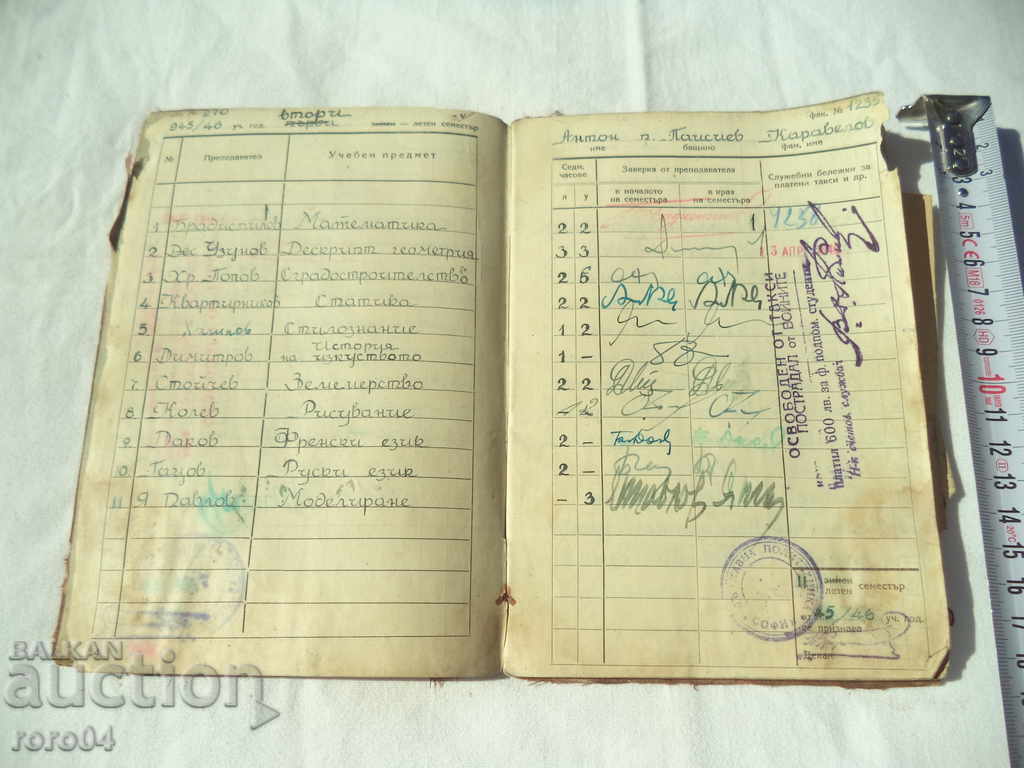 945/46 уч. год. втори първи зимен — летен семестър
№ Преподаватель Учебен предмет
1 Брадистилов Математика
2 Дес. Узунов Дескрипт геометрия
3 Хр. Попов Сградостроителство
4 Квартирников Статика
5. Стилознание
6 Димитров История на изкуството
7 Стойчев Земемерство
8. Колев Рисувание
9 Даков Френски език
10. Гацов Руски език
11 Я Павлов Моделиране
фак. № 1235
Антон п. Паисиев Каравелов
име бащино фам. име
Седм. часове Заверка от преподавателя Служебни бележки за платени такси и др.
л у в началото на семестъра в края на семестъра
2 2 1230
3 3 3 АПР.
2 6
2 2
1 2
1 -
2 2
2
2 -
2 -
- 3
ОСВОБОДЕН ОТ ТАКСИ
ПОСТРАДАЛ ОТ ВОЙНИТЕ
платил 600 лв. за ф. подпом. студенти
Н-к счетов. служба:
СОФИЯ
II зимен летен семестър
45/46 уч. год.
се признава
Декан
BALKAN
auction
roro04
CE M18
1 2 3 4 5 6 7 8 9 10 11 12 13 14 15 16 17